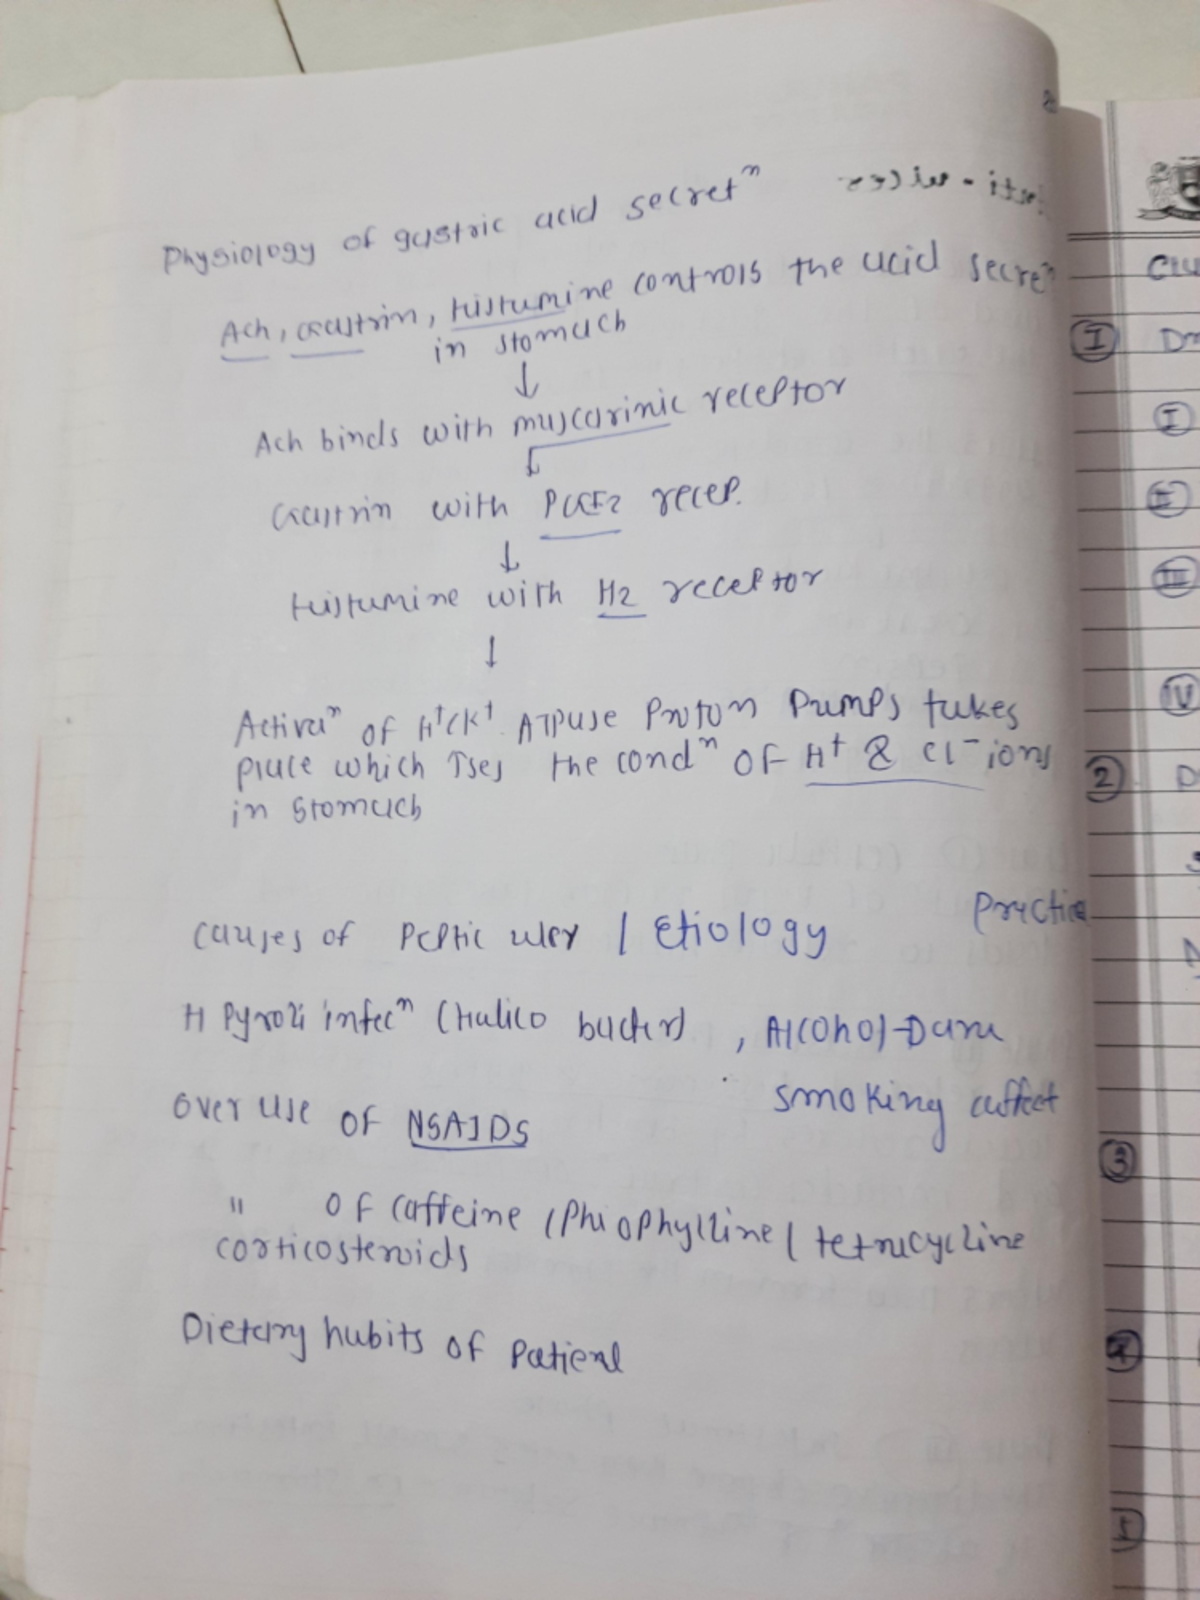 Physiology of gastric acid secretⁿ
Ach, Gastrin, Histamine controls the acid secreⁿ
in stomach
↓
Ach binds with muscarinic receptor
↓
Gastrin with PGE2 recep.
↓
Histamine with H2 receptor
↓
Activaⁿ of H⁺/K⁺ ATPase Proton Pumps takes
place which ↑ses the condⁿ of H⁺ & Cl⁻ ions
in stomach
Causes of Peptic ulcer / Etiology
Practice
H Pyroli infecⁿ (Halico bacter) , Alcohol-Daru
smoking
Over use of NSAIDs
" of caffeine / Phiophylline / tetracycline
corticosteroids
Dietary habits of Patient
I
I
II
III
IV
2
3
4